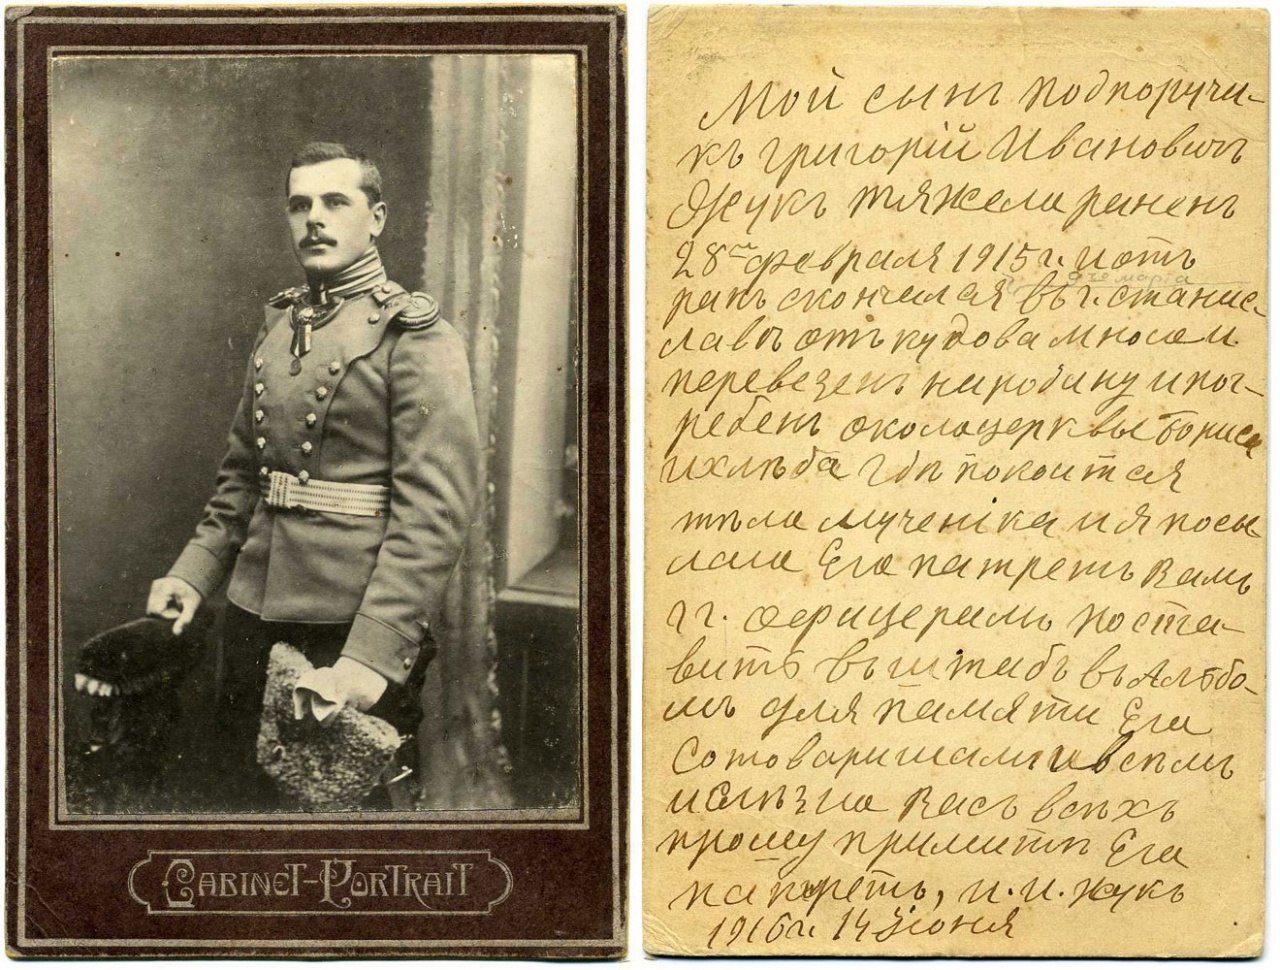 CABINET-PORTRAIT
Мой сынъ подпоручи-
къ григорій Ивановичъ
Жукъ тяжело раненъ
28го февраля 1915 г. и отъ
9го марта
ранъ скончался въ г. станис-
лавъ отъ кудова мною
перевезенъ на родину и пог-
ребенъ около церквы Бориса
и хлѣба гдѣ покоится
тѣло мученіка и я посы
лаю Его патретъ Вамъ
гг. офицерамъ поста-
вить въ штабъ въ Альбо-
мъ для памяти Его
сотоваришами и всѣмъ
и слѣзно Васъ всѣхъ
прошу примить Его
патреть, И. И. Жукъ
1916 г. 14 Июня